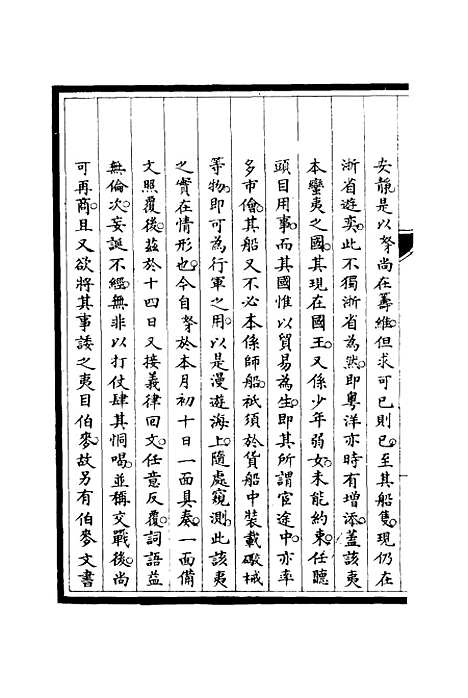 安靜是以孥尚在籌維但求可已則已至其船隻現仍在
浙省遊奕此不獨浙省為然即粵洋亦時有增添蓋該夷
本蠻夷之國其現在國王又係少年弱女未能約束任聽
頭目用事而其國惟以貿易為生即其所謂官途中亦率
多市儈其船又不必本係師船祇須於貨船中裝載礮械
等物即可為行軍之用以是漫遊海上隨處窺測此該夷
之實在情形也今自孥於本月初十日一面具奏一面備
文照覆後茲於十四日又接義律回文任意反覆詞語益
無倫次妄誕不經無非以打仗肆其恫喝並稱交戰後尚
可再商且又欲將其事諉之夷目伯麥故另有伯麥文書